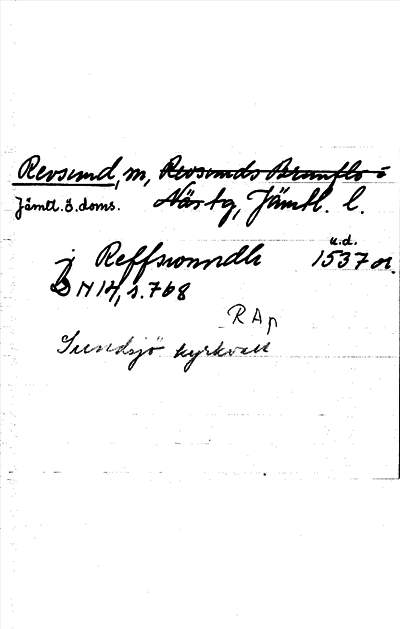 Revsund, m, Revsunds Brunflo i
Jämtl. ö. doms. När tg, Jämtl. l.
u.d.
j Reffswnndh 1537 or.
DN 14, s. 768
RAp
Sundsjö kyrkvall